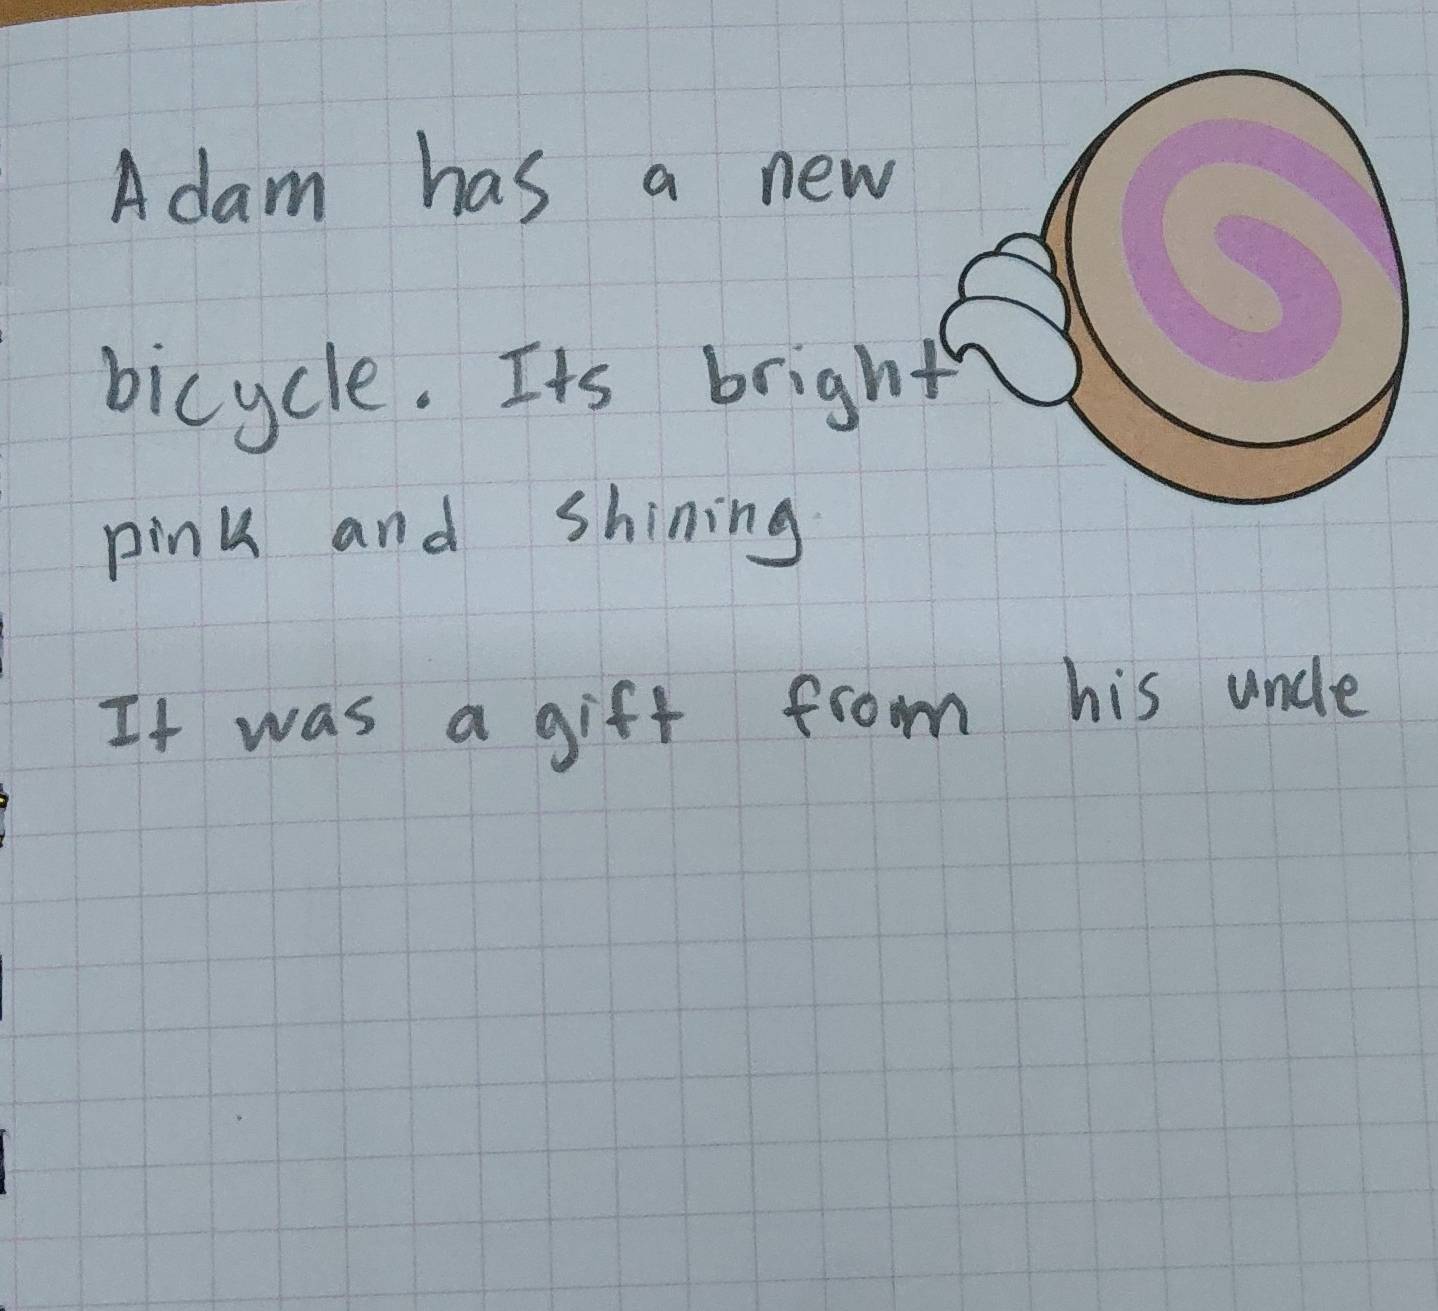 Adam has a new
bicycle. Its bright
pink and shining
It was a gift from his uncle